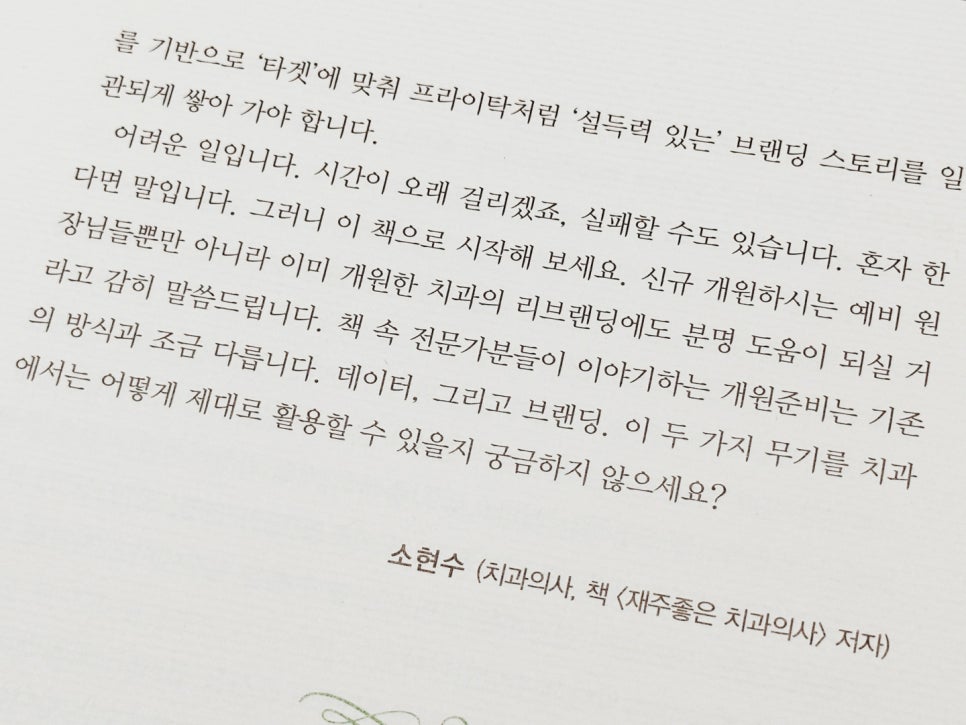 를 기반으로 ‘타겟’에 맞춰 프라이탁처럼 ‘설득력 있는’ 브랜딩 스토리를 일
관되게 쌓아 가야 합니다.
어려운 일입니다. 시간이 오래 걸리겠죠, 실패할 수도 있습니다. 혼자 한
다면 말입니다. 그러니 이 책으로 시작해 보세요. 신규 개원하시는 예비 원
장님들뿐만 아니라 이미 개원한 치과의 리브랜딩에도 분명 도움이 되실 거
라고 감히 말씀드립니다. 책 속 전문가분들이 이야기하는 개원준비는 기존
의 방식과 조금 다릅니다. 데이터, 그리고 브랜딩. 이 두 가지 무기를 치과
에서는 어떻게 제대로 활용할 수 있을지 궁금하지 않으세요?
소현수 (치과의사, 책 〈재주좋은 치과의사〉 저자)